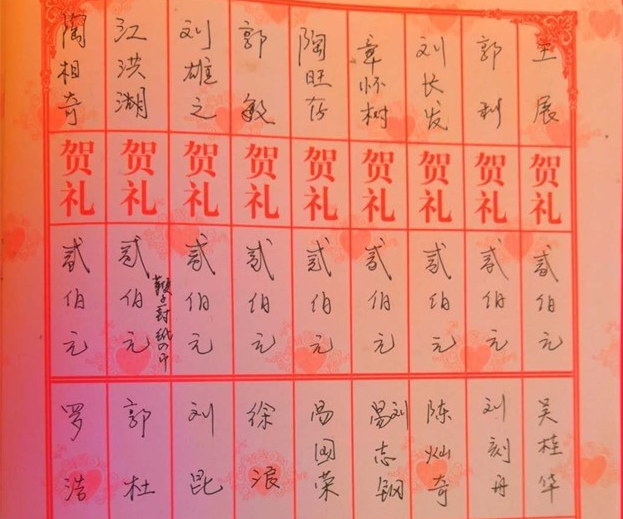 王展
郭利
刘长发
章怀树
陶旺存
郭敏
刘雄之
江洪湖
陶相奇
贺礼
贺礼
贺礼
贺礼
贺礼
贺礼
贺礼
贺礼
贺礼
贰伯元
贰伯元
贰伯元
贰伯元
贰伯元
贰伯元
贰伯元
贰伯元
贰伯元
吴桂华
刘刻丹
陈灿奇
刘志钢
昌国荣
徐浪
刘昆
郭杜
罗浩